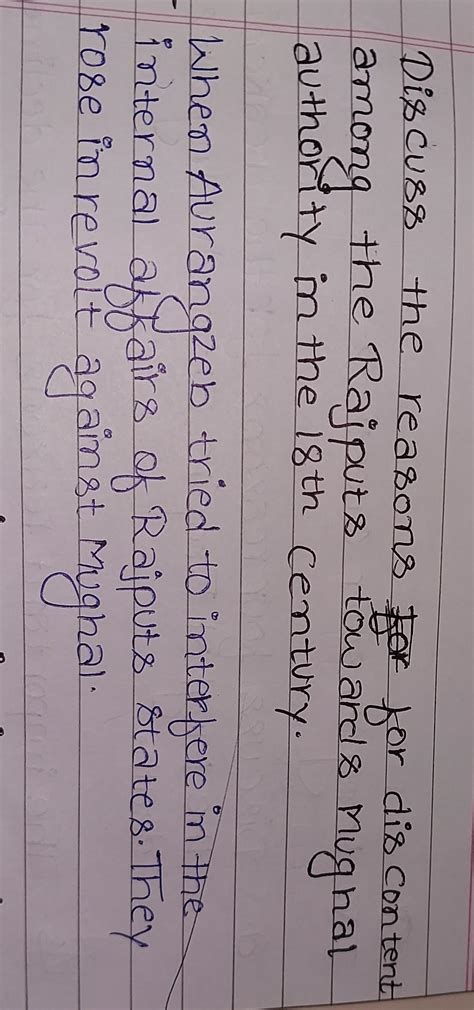 Discuss the reasons for for discontent
among the Rajputs towards Mughal
authority in the 18th century.
When Aurangzeb tried to interfere in the
internal affairs of Rajputs states. They
rose in revolt against Mughal.